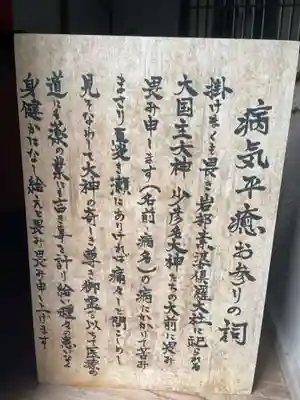 病気平癒お参りの詞
掛けまくも畏き岩部素婆倶羅大社に記られる
大国主大神 少彦名大神たちの大前に畏み
畏み申します(名前・病名)の病にかかりて苦み
まさり夏き瀬にありければ痛々しと聞こしめし
見そなわして大神の奇しき尊き御霊を以って医療の
道にも薬の業にも吉き事を計り給い種々の患いなく
身健かになし給えと畏み畏み申し上げます